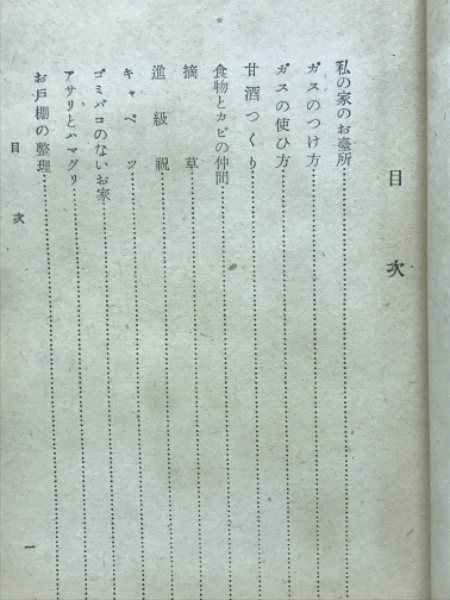 目次
私の家のお臺所
ガスのつけ方
ガスの使ひ方
甘酒つくり
食物とカビの仲間
摘草
進級祝
キャベツ
ゴミバコのないお家
アサリとハマグリ
お戸棚の整理
目次
一